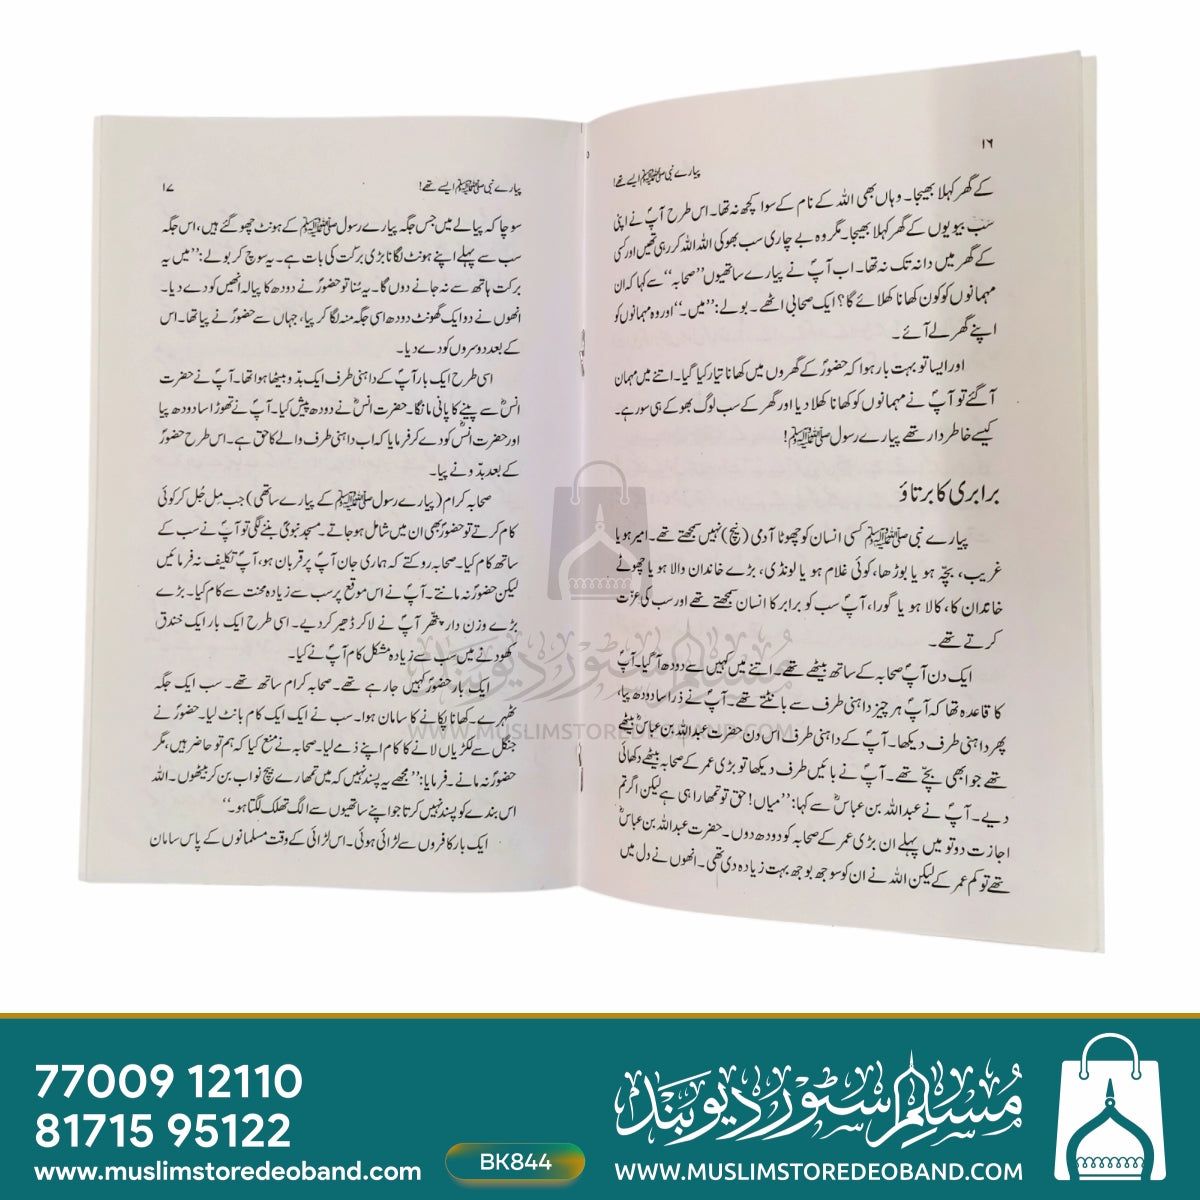 ۱۶
پیارے نبی ﷺ ایسے تھے!
کے گھر کہلا بھیجا۔ وہاں بھی اللہ کے نام کے سوا کچھ نہ تھا۔ اس طرح آپؐ نے اپنی
سب بیویوں کے گھر کہلا بھیجا۔ مگر وہ بے چاری سب بھوکی اللہ اللہ کر رہی تھیں اور کسی
کے گھر میں دانہ تک نہ تھا۔ اب آپؐ نے پیارے ساتھیوں ’’صحابہ‘‘ سے کہا کہ ان
مہمانوں کو کون کھانا کھلائے گا؟ ایک صحابی اٹھے۔ بولے: ’’میں۔‘‘ اور وہ مہمانوں کو
اپنے گھر لے آئے۔
اور ایسا تو بہت بار ہوا کہ حضورؐ کے گھروں میں کھانا تیار کیا گیا۔ اتنے میں مہمان
آگئے تو آپؐ نے مہمانوں کو کھانا کھلا دیا اور گھر کے سب لوگ بھوکے ہی سو رہے۔
کیسے خاطر دار تھے پیارے رسول ﷺ!
برابری کا برتاؤ
پیارے نبی ﷺ کسی انسان کو چھوٹا آدمی (نیچ) نہیں سمجھتے تھے۔ امیر ہو یا
غریب، بچّہ ہو یا بوڑھا، کوئی غلام ہو یا لونڈی، بڑے خاندان والا ہو یا چھوٹے
خاندان کا، کالا ہو یا گورا، آپؐ سب کو برابر کا انسان سمجھتے تھے اور سب کی عزت
کرتے تھے۔
ایک دن آپؐ صحابہ کے ساتھ بیٹھے تھے۔ اتنے میں کہیں سے دودھ آ گیا۔ آپؐ
کا قاعدہ تھا کہ آپؐ ہر چیز داہنی طرف سے بانٹتے تھے۔ آپؐ نے ذرا سا دودھ پیا،
پھر داہنی طرف دیکھا۔ آپؐ کے داہنی طرف اس دن حضرت عبداللہ بن عباسؓ بیٹھے
تھے جو ابھی بچّے تھے۔ آپؐ نے بائیں طرف دیکھا تو بڑی عمر کے صحابہ بیٹھے دکھائی
دیے۔ آپؐ نے عبداللہ بن عباسؓ سے کہا: ’’میاں! حق تو تمھارا ہی ہے لیکن اگر تم
اجازت دو تو میں پہلے ان بڑی عمر کے صحابہ کو دودھ دوں۔ حضرت عبداللہ بن عباسؓ
تھے تو کم عمر کے لیکن اللہ نے ان کو سوجھ بوجھ بہت زیادہ دی تھی۔ انھوں نے دل میں
پیارے نبی ﷺ ایسے تھے!
۱۷
سوچا کہ پیالے میں جس جگہ پیارے رسول ﷺ کے ہونٹ چھو گئے ہیں، اس جگہ
سب سے پہلے اپنے ہونٹ لگانا بڑی برکت کی بات ہے۔ یہ سوچ کر بولے: ’’میں یہ
برکت ہاتھ سے نہ جانے دوں گا۔ یہ سُنا تو حضورؐ نے دودھ کا پیالہ انھیں کو دے دیا۔
انھوں نے دو ایک گھونٹ دودھ اسی جگہ منہ لگا کر پیا، جہاں سے حضورؐ نے پیا تھا۔ اس
کے بعد دوسروں کو دے دیا۔
اسی طرح ایک بار آپؐ کے داہنی طرف ایک بدو بیٹھا ہوا تھا۔ آپؐ نے حضرت
انسؓ سے پینے کا پانی مانگا۔ حضرت انسؓ نے دودھ پیش کیا۔ آپؐ نے تھوڑا سا دودھ پیا
اور حضرت انسؓ کو دے کر فرمایا کہ اب داہنی طرف والے کا حق ہے۔ اس طرح حضورؐ
کے بعد بدّو نے پیا۔
صحابہ کرام (پیارے رسول ﷺ کے پیارے ساتھی) جب مِل جُل کر کوئی
کام کرتے تو حضورؐ بھی ان میں شامل ہو جاتے۔ مسجد نبویؐ بننے لگی تو آپؐ نے سب کے
ساتھ کام کیا۔ صحابہ روکتے کہ ہماری جان آپؐ پر قربان ہو، آپؐ تکلیف نہ فرمائیں
لیکن حضورؐ نہ مانتے۔ آپؐ نے اس موقع پر سب سے زیادہ محنت سے کام کیا۔ بڑے
بڑے وزن دار پتھر آپؐ نے لا کر ڈھیر کر دیے۔ اسی طرح ایک بار ایک خندق
کھودنے میں سب سے زیادہ مشکل کام آپؐ نے کیا۔
ایک بار حضورؐ کہیں جا رہے تھے۔ صحابہ کرام ساتھ تھے۔ سب ایک جگہ
ٹھہرے۔ کھانا پکانے کا سامان ہوا۔ سب نے ایک ایک کام بانٹ لیا۔ حضورؐ نے
جنگل سے لکڑیاں لانے کا کام اپنے ذمے لیا۔ صحابہ نے منع کیا کہ ہم تو حاضر ہیں، مگر
حضورؐ نہ مانے۔ فرمایا: ’’مجھے یہ پسند نہیں کہ میں تمھارے بیچ نواب بن کر بیٹھوں۔ اللہ
اس بندے کو پسند نہیں کرتا جو اپنے ساتھیوں سے الگ تھلگ لگتا ہو۔‘‘
ایک بار کافروں سے لڑائی ہوئی۔ اس لڑائی کے وقت مسلمانوں کے پاس سامان
مسلم سٹور دیوبند
WWW.MUSLIMSTOREDEOBAND.COM
77009 12110
81715 95122
www.muslimstoredeoband.com
BK844
مسلم سٹور دیوبند
WWW.MUSLIMSTOREDEOBAND.COM